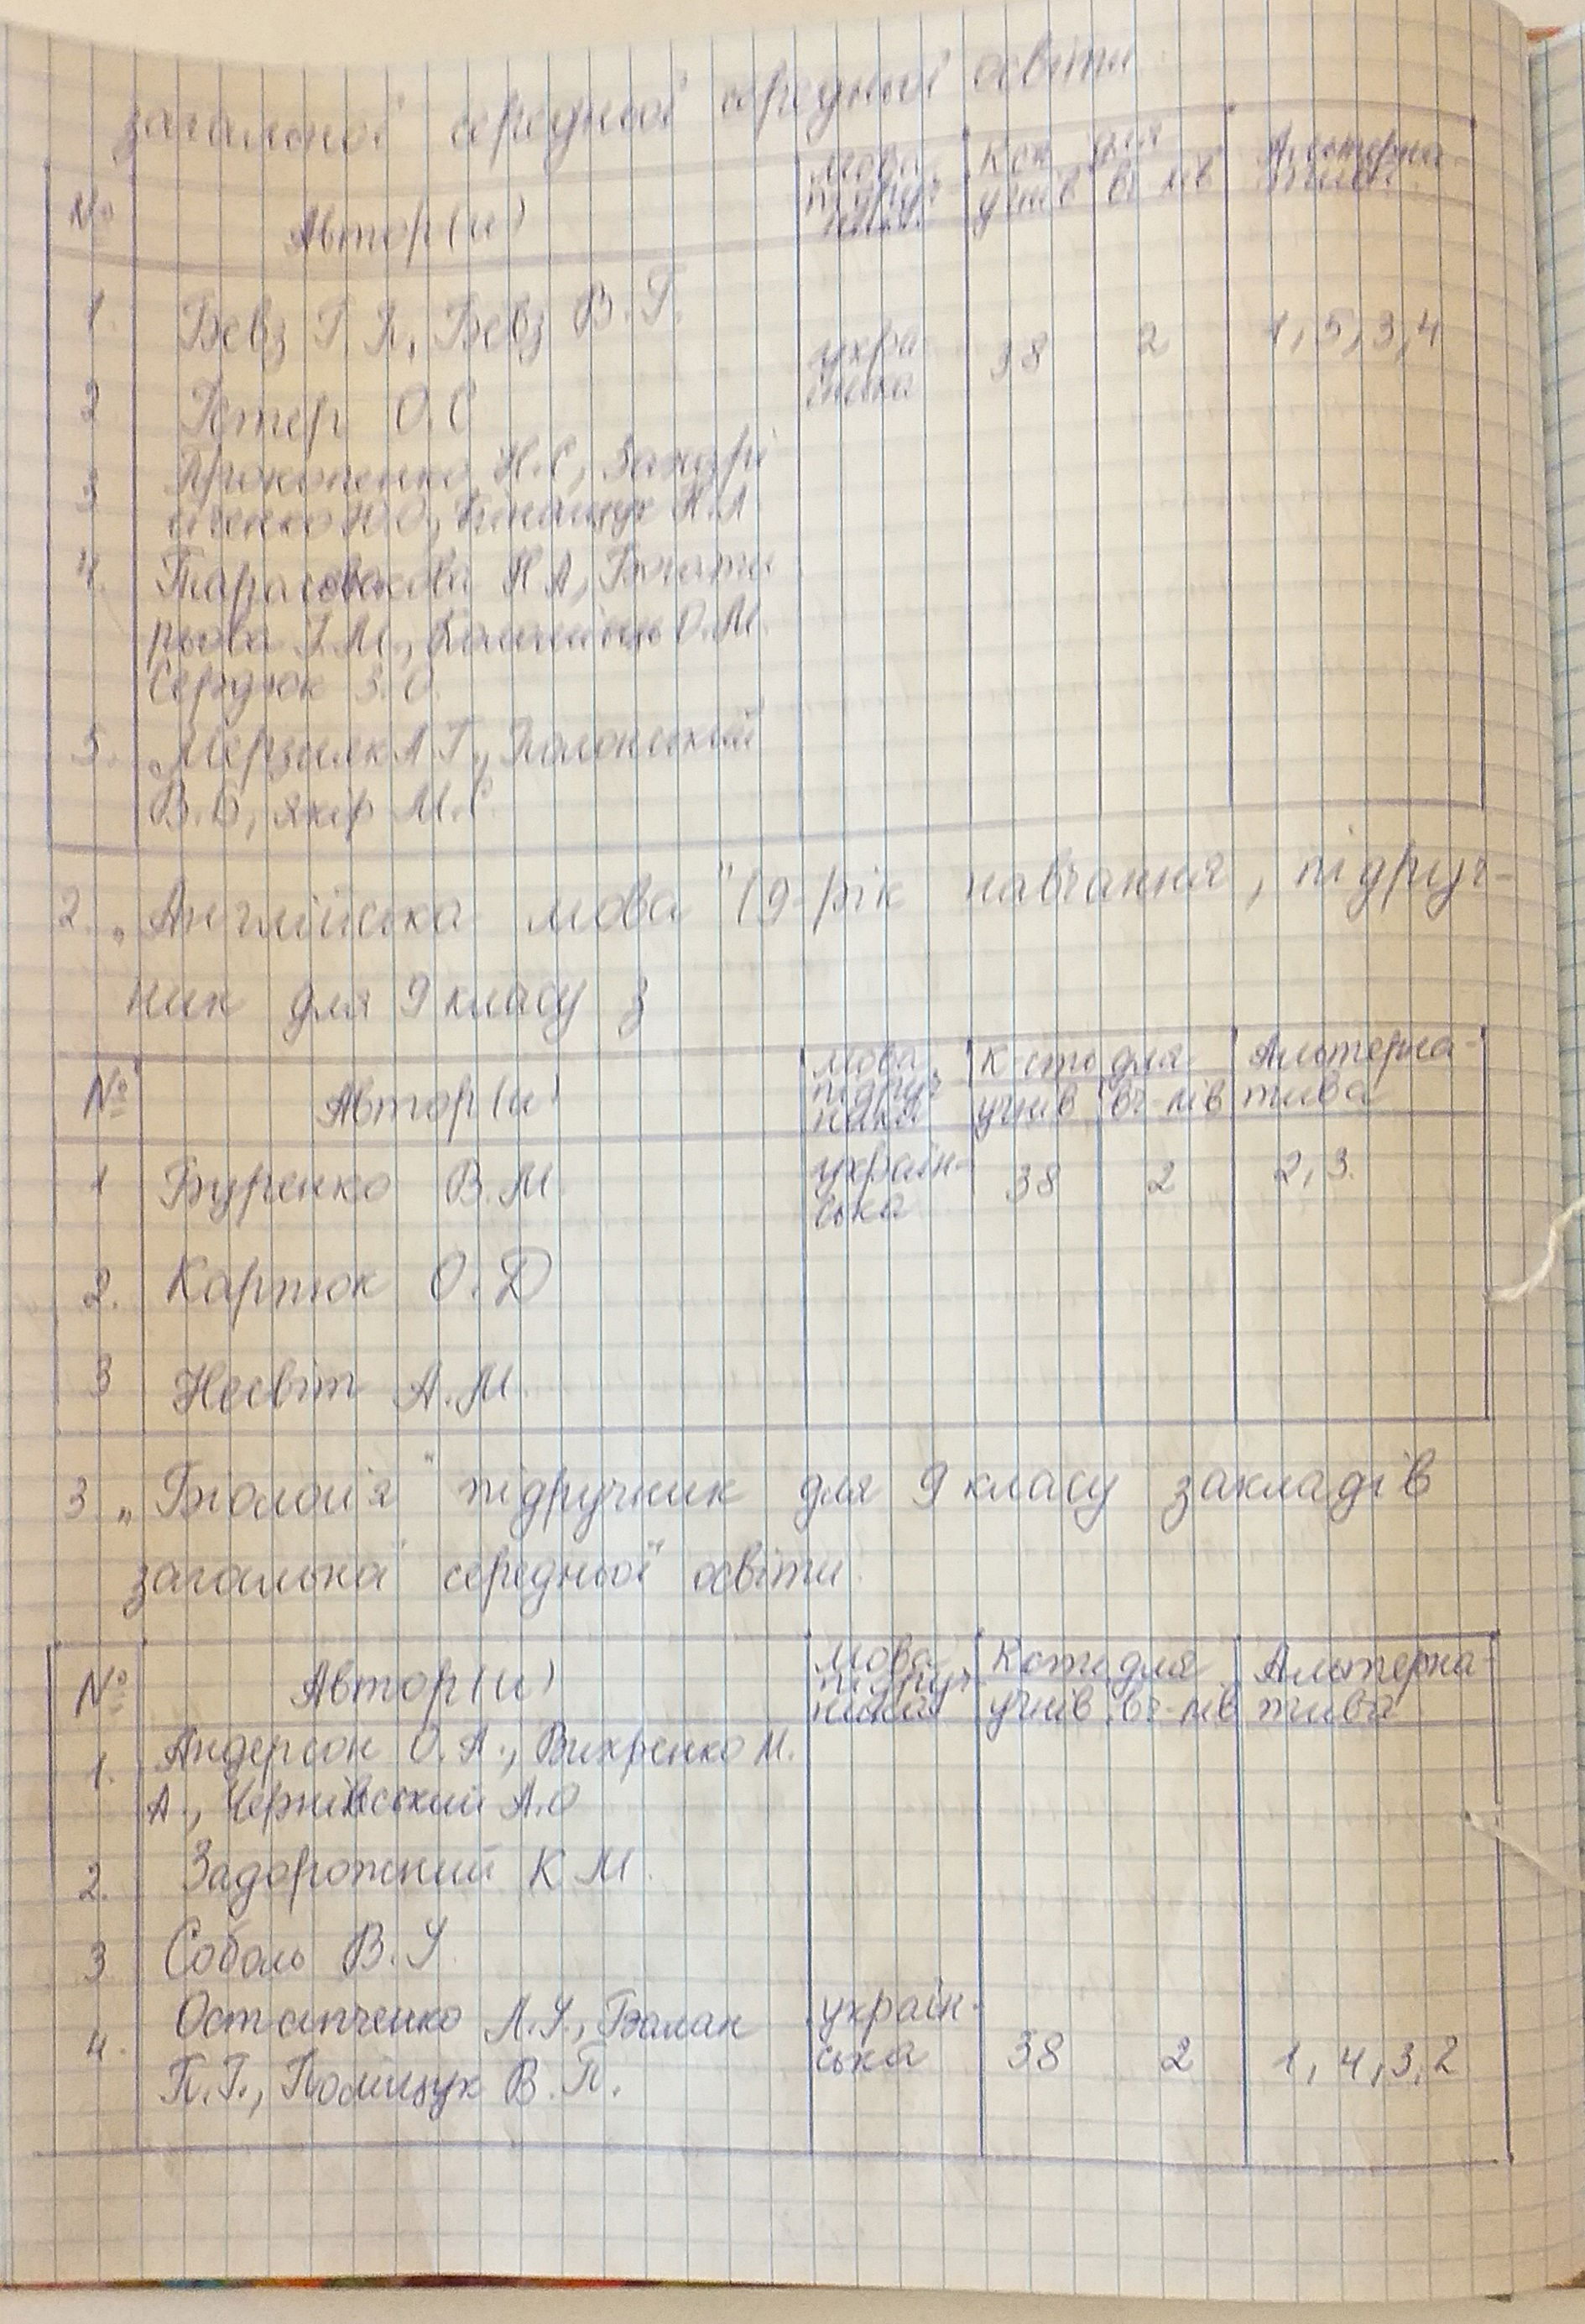 загальної середньої середньої освіти
№ Автор(и) мова підруч ника К сть для учнів вч-лів Альтерна тива
1. Бевз Г П, Бевз В.Г.
украї нська 38 2 1, 5, 3, 4
2 Істер О.С
3 Прокопенко Н.С, Захарі
йченко Ю.О, Кінащук Н.Л
4. Тарасенкова Н А, Богати
рьова І.М., Коломієць О.М.
Сердюк З.О.
5. Мерзляк А Г., Полонський
В.Б, Якір М.С.
2. „Англійська мова" (9-рік навчання, підруч-
ник для 9 класу з
№ Автор(и) мова підруч ника К сть для учнів вч-лів Альтерна- тива
1 Буренко В.М. україн- ська 38 2 2, 3.
2. Карпюк О.Д
3 Несвіт А.М.
3. „Біологія" підручник для 9 класу закладів
загальної середньої освіти.
№ Автор(и) мова підруч ника К сть для учнів вч-лів Альтерна- тива
1. Андерсон О.А., Вихренко М.
А., Чернінський А.О
2. Задорожний К М.
3 Соболь В.І.
4. Остапченко Л.І., Балан україн-
П.Г., Поліщук В.П. ська 38 2 1, 4, 3, 2